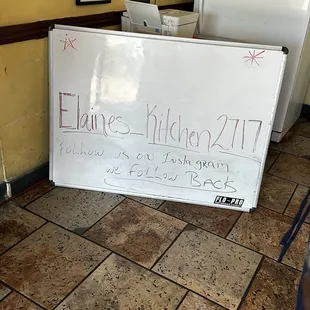 Elaines_Kitchen2717
Follow us on Instagram
we Follow Back
FLO-PRO